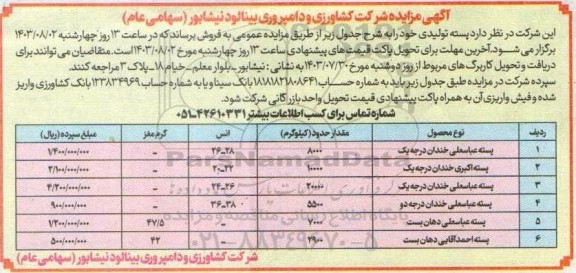 آگهی مزایده شرکت کشاورزی و دامپروری بینالود نیشابور (سهامی عام)
این شرکت در نظر دارد پسته تولیدی خود را به شرح جدول زیر از طریق مزایده عمومی به فروش برساند که در ساعت ۱۳ روز چهارشنبه ۱۴۰۳/۰۸/۰۲
برگزار می شود. آخرین مهلت برای تحویل پاکت قیمت های پیشنهادی ساعت ۱۳ روز چهارشنبه مورخ ۱۴۰۳/۰۸/۰۲ است. متقاضیان می توانند برای
دریافت و تحویل کاربرگ های مربوط از روز دوشنبه مورخ ۱۴۰۳/۰۷/۳۰ به نشانی: نیشابور_بلوار معلم_خیام ۱۸_پلاک ۳ مراجعه کنند.
سپرده شرکت در مزایده طبق جدول زیر باید به شماره حساب بانک سینا و یا به شماره حساب ۱۲۳۸۳۴۹۶۹ بانک کشاورزی واریز
شده و فیش واریزی آن به همراه پاکت پیشنهادی قیمت تحویل واحد بازرگانی شرکت شود.
شماره تماس برای کسب اطلاعات بیشتر ۴۲۶۱۰۳۳۱-۰۵۱
ردیف نوع محصول مقدار حدود (کیلوگرم) انس گرم مغز مبلغ سپرده (ریال)
۱ پسته عباسعلی خندان درجه یک ۸۰۰۰ ۲۸_۲۶ - ۱/۴۰۰/۰۰۰/۰۰۰
۲ پسته اکبری خندان درجه یک ۱۰۰۰۰ ۲۲_۲۰ - ۲/۱۰۰/۰۰۰/۰۰۰
۳ پسته عباسعلی خندان درجه یک ۲۰۰۰۰ ۲۶_۲۴ - ۴/۲۰۰/۰۰۰/۰۰۰
۴ پسته عباسعلی خندان درجه دو ۵۵۰۰ ۳۸_۳۶ - ۹۰۰/۰۰۰/۰۰۰
۵ پسته عباسعلی دهان بست ۷۰۰۰ - ۴۷/۵ ۱/۲۰۰/۰۰۰/۰۰۰
۶ پسته احمدآقایی دهان بست ۲۹۰۰ - ۴۲ ۵۰۰/۰۰۰/۰۰۰
شرکت کشاورزی و دامپروری بینالود نیشابور (سهامی عام)
ParsNamadData
پایگاه اطلاع رسانی مناقصه و مزایده
۰۲۱-۸۸۳۴۹۶۷۰-۵